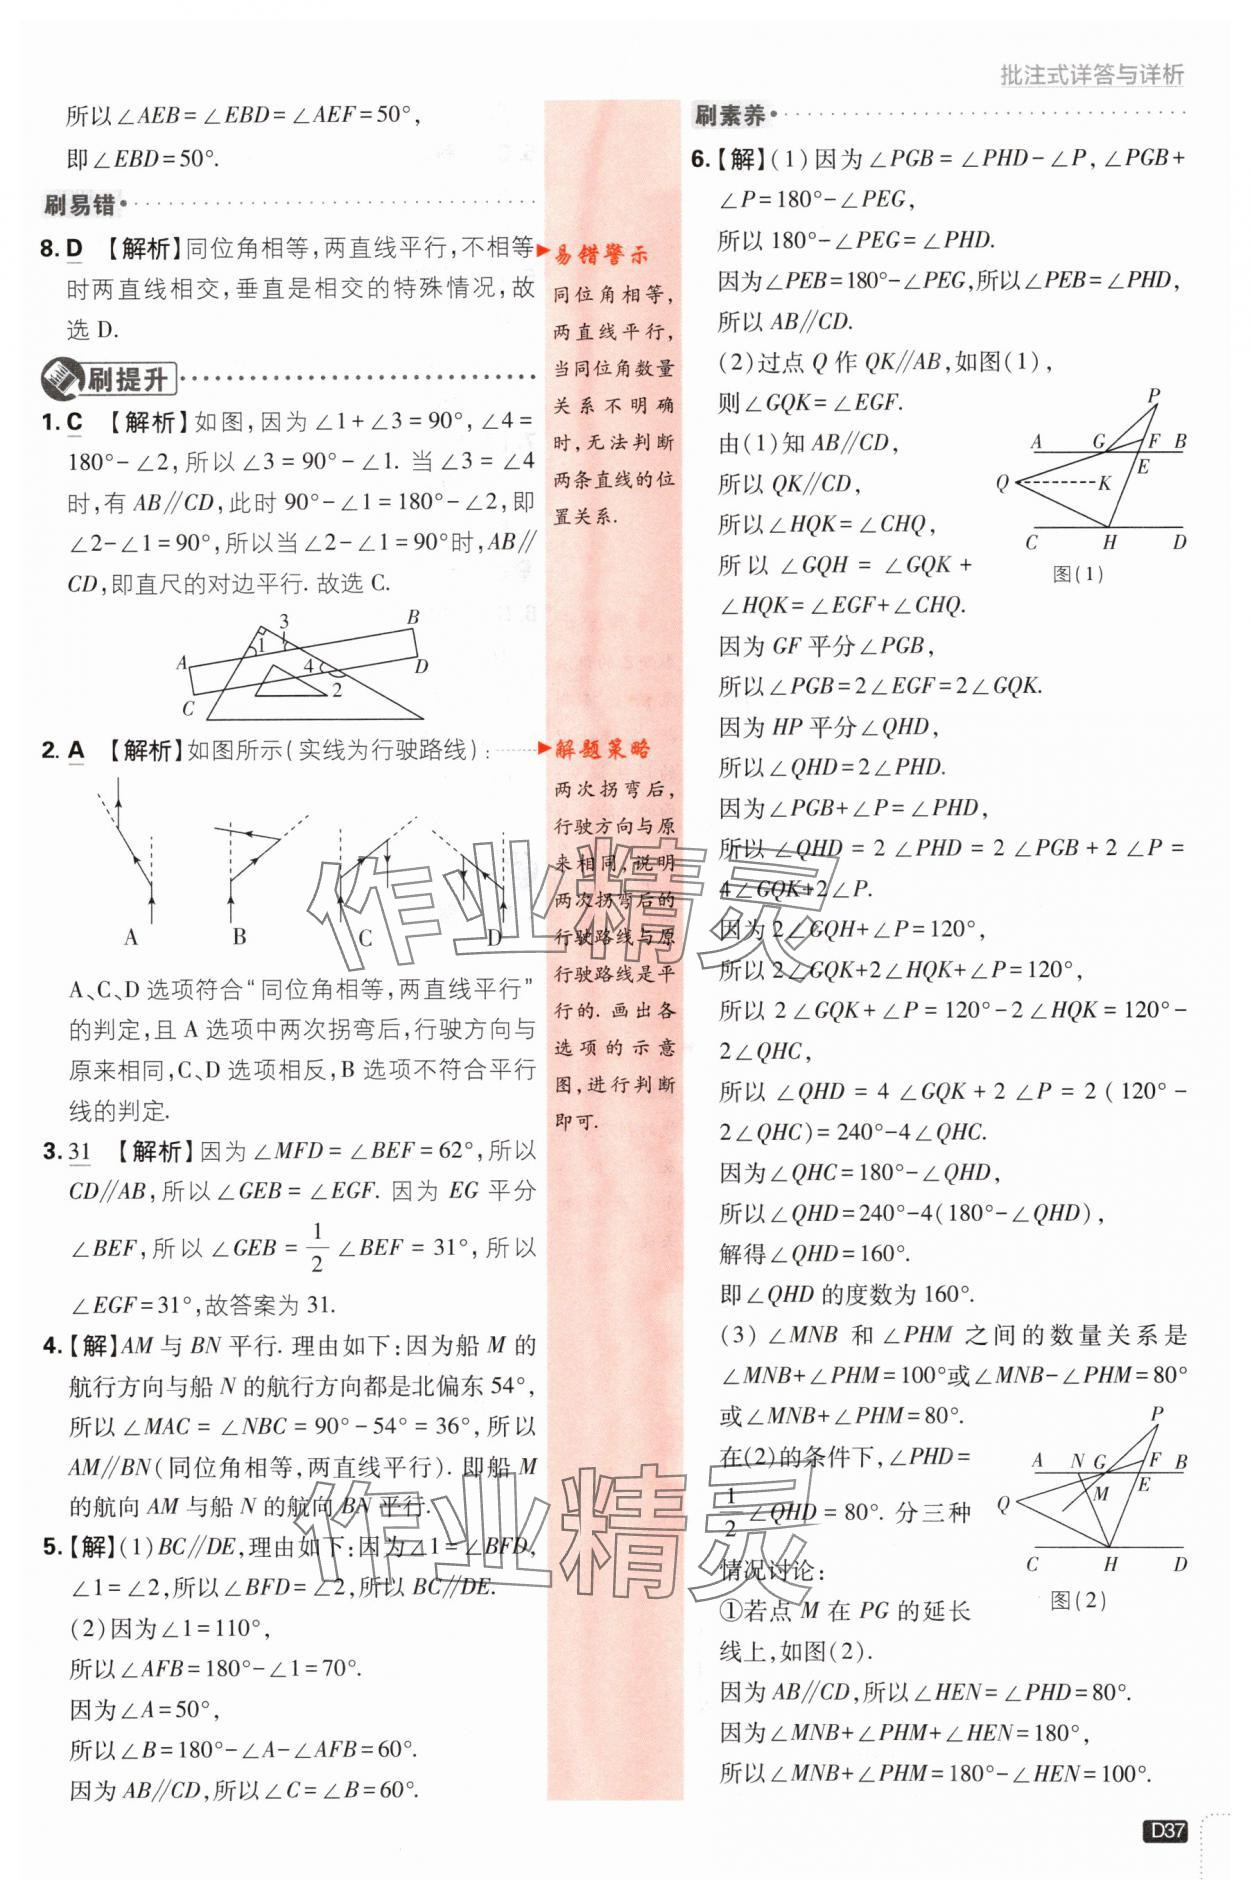 批注式详答与详析
所以∠AEB=∠EBD=∠AEF=50°,
即∠EBD=50°.
刷易错
8. D 【解析】同位角相等,两直线平行,不相等
时两直线相交,垂直是相交的特殊情况,故
选 D.
刷提升
1. C 【解析】如图,因为∠1+∠3=90°,∠4=
180°-∠2,所以∠3=90°-∠1. 当∠3=∠4
时,有AB∥CD,此时90°-∠1=180°-∠2,即
∠2-∠1=90°,所以当∠2-∠1=90°时,AB∥
CD,即直尺的对边平行. 故选 C.
A
B
C
D
1
3
4
2
2. A 【解析】如图所示(实线为行驶路线):
A B C D
A、C、D 选项符合“同位角相等,两直线平行”
的判定,且 A 选项中两次拐弯后,行驶方向与
原来相同,C、D 选项相反,B 选项不符合平行
线的判定.
3. 31 【解析】因为∠MFD=∠BEF=62°,所以
CD∥AB,所以∠GEB=∠EGF. 因为 EG 平分
∠BEF,所以∠GEB=1/2∠BEF=31°,所以
∠EGF=31°,故答案为 31.
4.【解】AM 与 BN 平行. 理由如下:因为船 M 的
航行方向与船 N 的航行方向都是北偏东 54°,
所以∠MAC=∠NBC=90°-54°=36°,所以
AM∥BN(同位角相等,两直线平行). 即船 M
的航向 AM 与船 N 的航向 BN 平行.
5.【解】(1)BC∥DE,理由如下:因为∠1=∠BFD,
∠1=∠2,所以∠BFD=∠2,所以 BC∥DE.
(2)因为∠1=110°,
所以∠AFB=180°-∠1=70°.
因为∠A=50°,
所以∠B=180°-∠A-∠AFB=60°.
因为 AB∥CD,所以∠C=∠B=60°.
易错警示
同位角相等,
两直线平行,
当同位角数量
关系不明确
时,无法判断
两条直线的位
置关系.
解题策略
两次拐弯后,
行驶方向与原
来相同,说明
两次拐弯后的
行驶路线与原
行驶路线是平
行的. 画出各
选项的示意
图,进行判断
即可.
刷素养
6.【解】(1)因为∠PGB=∠PHD-∠P,∠PGB+
∠P=180°-∠PEG,
所以 180°-∠PEG=∠PHD.
因为∠PEB=180°-∠PEG,所以∠PEB=∠PHD,
所以 AB∥CD.
(2)过点 Q 作 QK∥AB,如图(1),
则∠GQK=∠EGF.
由(1)知 AB∥CD,
所以 QK∥CD,
所以∠HQK=∠CHQ,
所以∠GQH=∠GQK+
∠HQK=∠EGF+∠CHQ.
P
A G F B
E
Q K
C H D
图(1)
因为 GF 平分∠PGB,
所以∠PGB=2∠EGF=2∠GQK.
因为 HP 平分∠QHD,
所以∠QHD=2∠PHD.
因为∠PGB+∠P=∠PHD,
所以∠QHD=2∠PHD=2∠PGB+2∠P=
4∠GQK+2∠P.
因为 2∠GQH+∠P=120°,
所以 2∠GQK+2∠HQK+∠P=120°,
所以 2∠GQK+∠P=120°-2∠HQK=120°-
2∠QHC,
所以∠QHD=4∠GQK+2∠P=2(120°-
2∠QHC)=240°-4∠QHC.
因为∠QHC=180°-∠QHD,
所以∠QHD=240°-4(180°-∠QHD),
解得∠QHD=160°.
即∠QHD 的度数为 160°.
(3)∠MNB 和∠PHM 之间的数量关系是
∠MNB+∠PHM=100°或∠MNB-∠PHM=80°
或∠MNB+∠PHM=80°.
在(2)的条件下,∠PHD=
1/2∠QHD=80°. 分三种
情况讨论:
①若点 M 在 PG 的延长
线上,如图(2).
P
A N G F B
E
Q M
C H D
图(2)
因为 AB∥CD,所以∠HEN=∠PHD=80°.
因为∠MNB+∠PHM+∠HEN=180°,
所以∠MNB+∠PHM=180°-∠HEN=100°.
作业精灵
作业精灵
D37